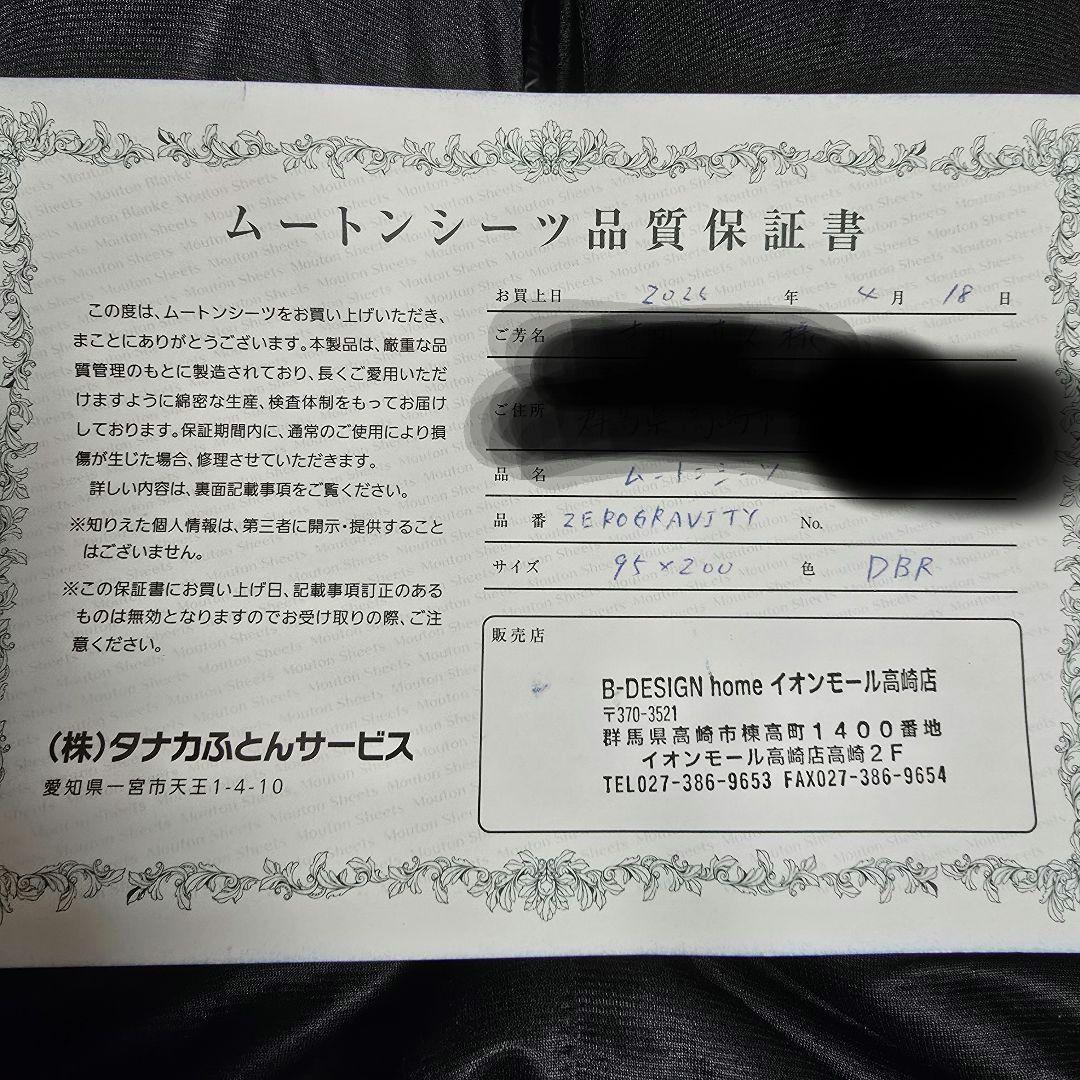 ムートンシーツ品質保証書
この度は、ムートンシーツをお買い上げいただき、
まことにありがとうございます。本製品は、厳重な品
質管理のもとに製造されており、長くご愛用いただ
けますように綿密な生産、検査体制をもってお届け
しております。保証期間内に、通常のご使用により損
傷が生じた場合、修理させていただきます。
詳しい内容は、裏面記載事項をご覧ください。
※知りえた個人情報は、第三者に開示・提供すること
はございません。
※この保証書にお買い上げ日、記載事項訂正のある
ものは無効となりますのでお受け取りの際、ご注
意ください。
(株)タナカふとんサービス
愛知県一宮市天王1-4-10
お買上日 年 4月 18日
ご芳名 様
ご住所
品名 ムートンシーツ
品番 ZEROGRAVITY No.
サイズ 95×200 色 DBR
販売店
B-DESIGN home イオンモール高崎店
〒370-3521
群馬県高崎市棟高町1400番地
イオンモール高崎店高崎2F
TEL027-386-9653 FAX027-386-9654